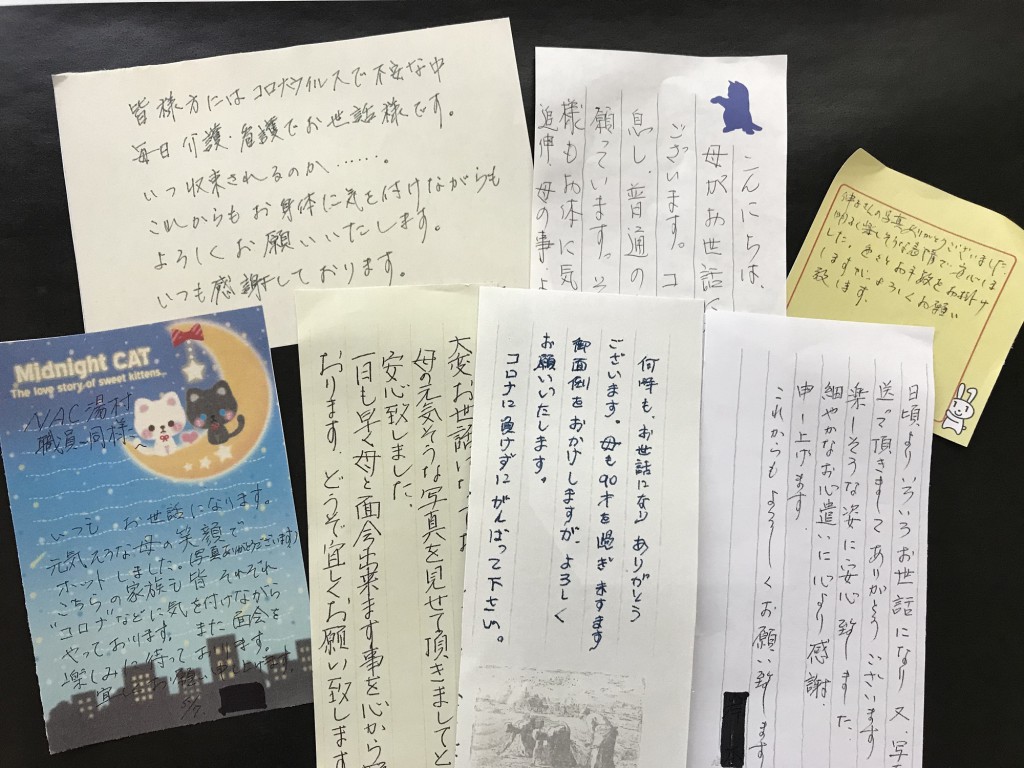 皆様方にはコロナウイルスで不安な中
毎日介護・看護でお世話様です。
いつ収束されるのか……。
これからもお身体に気を付けながらも
よろしくお願いいたします。
いつも感謝しております。
こんにちは、
母がお世話に
ございます。コ
息し、普通の
願っています。そ
様もお体に気
追伸 母の事、よ
さんの写真ありがとうございました
明るく楽しそうな表情で安心しま
した。色々とお手数をお掛け
しますが、よろしくお願い
致します。
Midnight CAT
The love story of sweet kittens
NAC湯村
職員一同様へ
いつも お世話になります。
元気そうな母の笑顔で
ホットしました。(写真ありがとうございます)
こちらの家族も皆それぞれ
コロナなどに気を付けながら
やっております。また面会を
楽しみに待っております。
宜しくお願い申し上げます。
5/7.
大変お世話になってお
母の元気そうな写真を見せて頂きましてと
安心致しました。
一日も早く母と面会出来ます事を心から
おります。どうぞ宜しくお願い致します
何時も、お世話になり ありがとう
ございます。母も90才を過ぎ ますます
御面倒をおかけしますが、よろしく
お願いいたします。
コロナに負けずにがんばって下さい。
日頃より いろいろお世話になり 又、写
送って頂きまして ありがとうございます
楽しそうな姿に安心致しました。
細やかなお心遣いに心より感謝
申し上げます。
これからも よろしくお願い致します